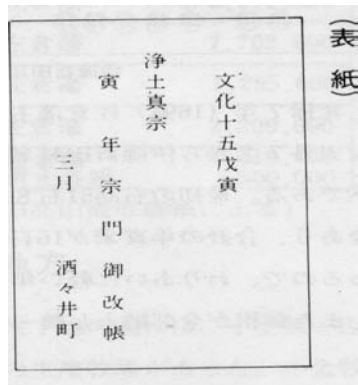 (表紙)
文化十五戊寅
浄土真宗
寅年宗門御改帳
三月 酒々井町